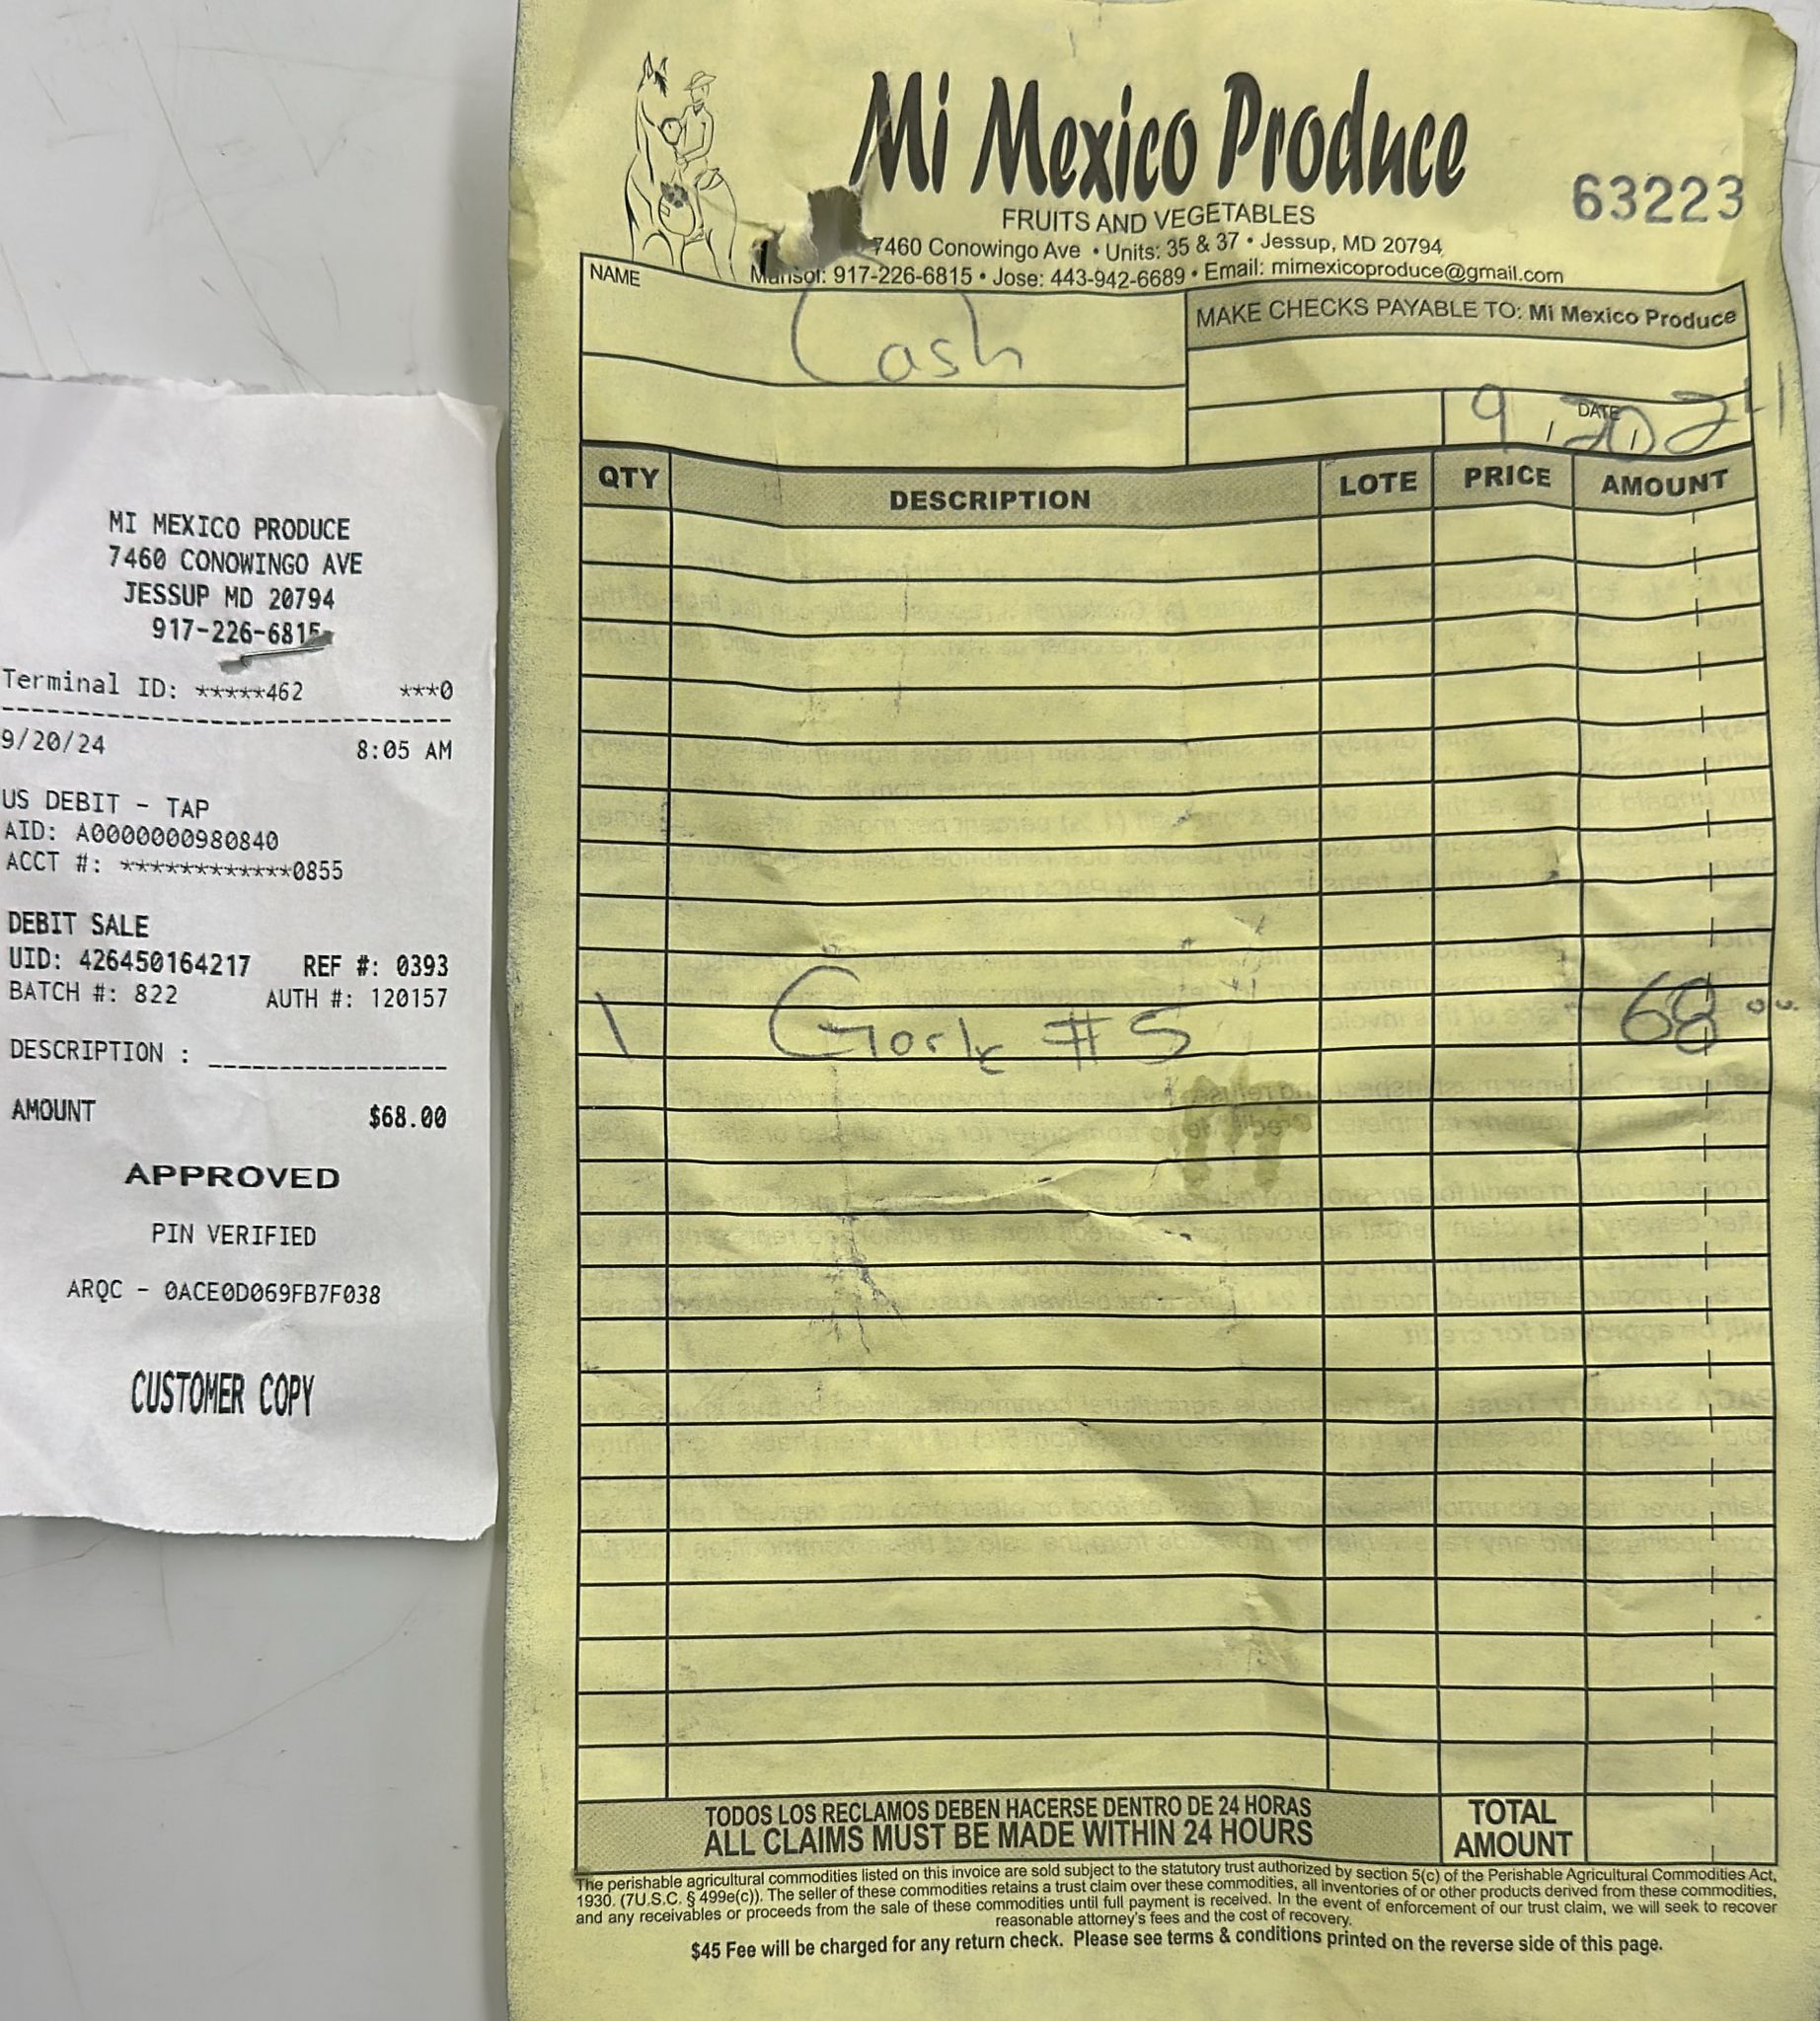 MI MEXICO PRODUCE
7460 CONOWINGO AVE
JESSUP MD 20794
917-226-6815
Terminal ID: *****462 ***0
9/20/24 8:05 AM
US DEBIT - TAP
AID: A0000000980840
ACCT #: ************0855
DEBIT SALE
UID: 426450164217 REF #: 0393
BATCH #: 822 AUTH #: 120157
DESCRIPTION :
AMOUNT $68.00
APPROVED
PIN VERIFIED
ARQC - 0ACE0D069FB7F038
CUSTOMER COPY
Mi Mexico Produce
63223
FRUITS AND VEGETABLES
7460 Conowingo Ave • Units: 35 & 37 • Jessup, MD 20794
917-226-6815 • Jose: 443-942-6689 • Email: mimexicoproduce@gmail.com
NAME
Cash
MAKE CHECKS PAYABLE TO: Mi Mexico Produce
DATE
9, 20, 24
QTY DESCRIPTION LOTE PRICE AMOUNT
1 #5 68 00
TODOS LOS RECLAMOS DEBEN HACERSE DENTRO DE 24 HORAS
ALL CLAIMS MUST BE MADE WITHIN 24 HOURS
TOTAL
AMOUNT
The perishable agricultural commodities listed on this invoice are sold subject to the statutory trust authorized by section 5(c) of the Perishable Agricultural Commodities Act,
1930. (7U.S.C. § 499e(c)). The seller of these commodities retains a trust claim over these commodities, all inventories of or other products derived from these commodities,
and any receivables or proceeds from the sale of these commodities until full payment is received. In the event of enforcement of our trust claim, we will seek to recover
reasonable attorney's fees and the cost of recovery.
$45 Fee will be charged for any return check. Please see terms & conditions printed on the reverse side of this page.